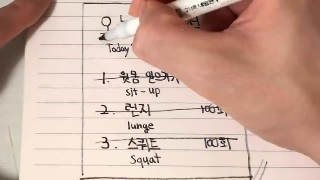 오
Today
1. 윗몸 일으키기
sit-up
2. 런지 100회
lunge
3. 스쿼트 100회
Squat